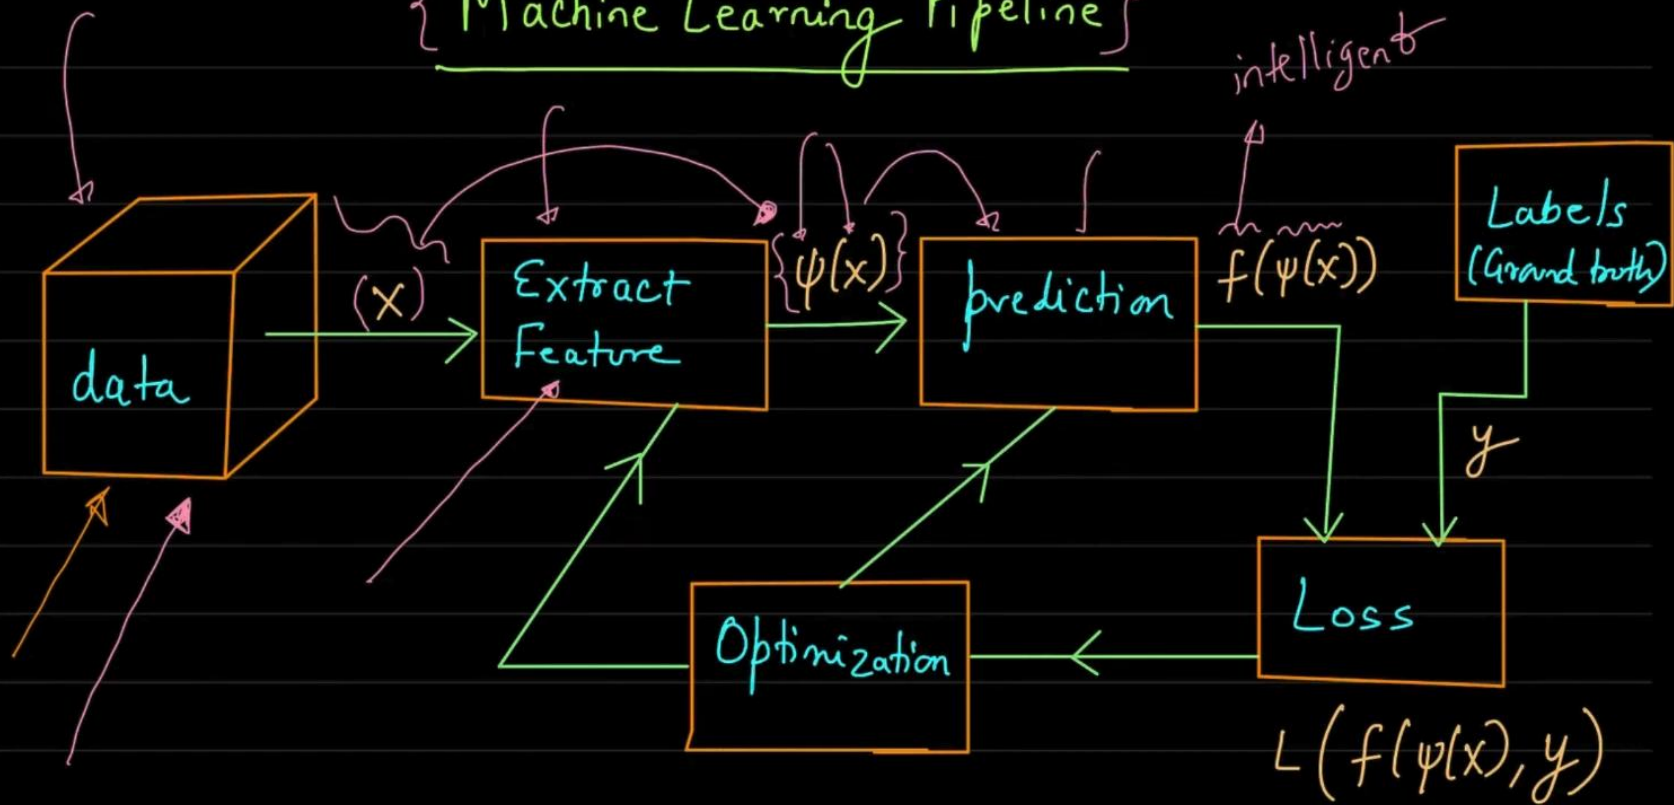 { Machine Learning Pipeline }
intelligent
data
(x)
Extract
Feature
{ψ(x)}
prediction
f(ψ(x))
Labels
(Grand truth)
y
Loss
Optimization
L(f(ψ(x), y)